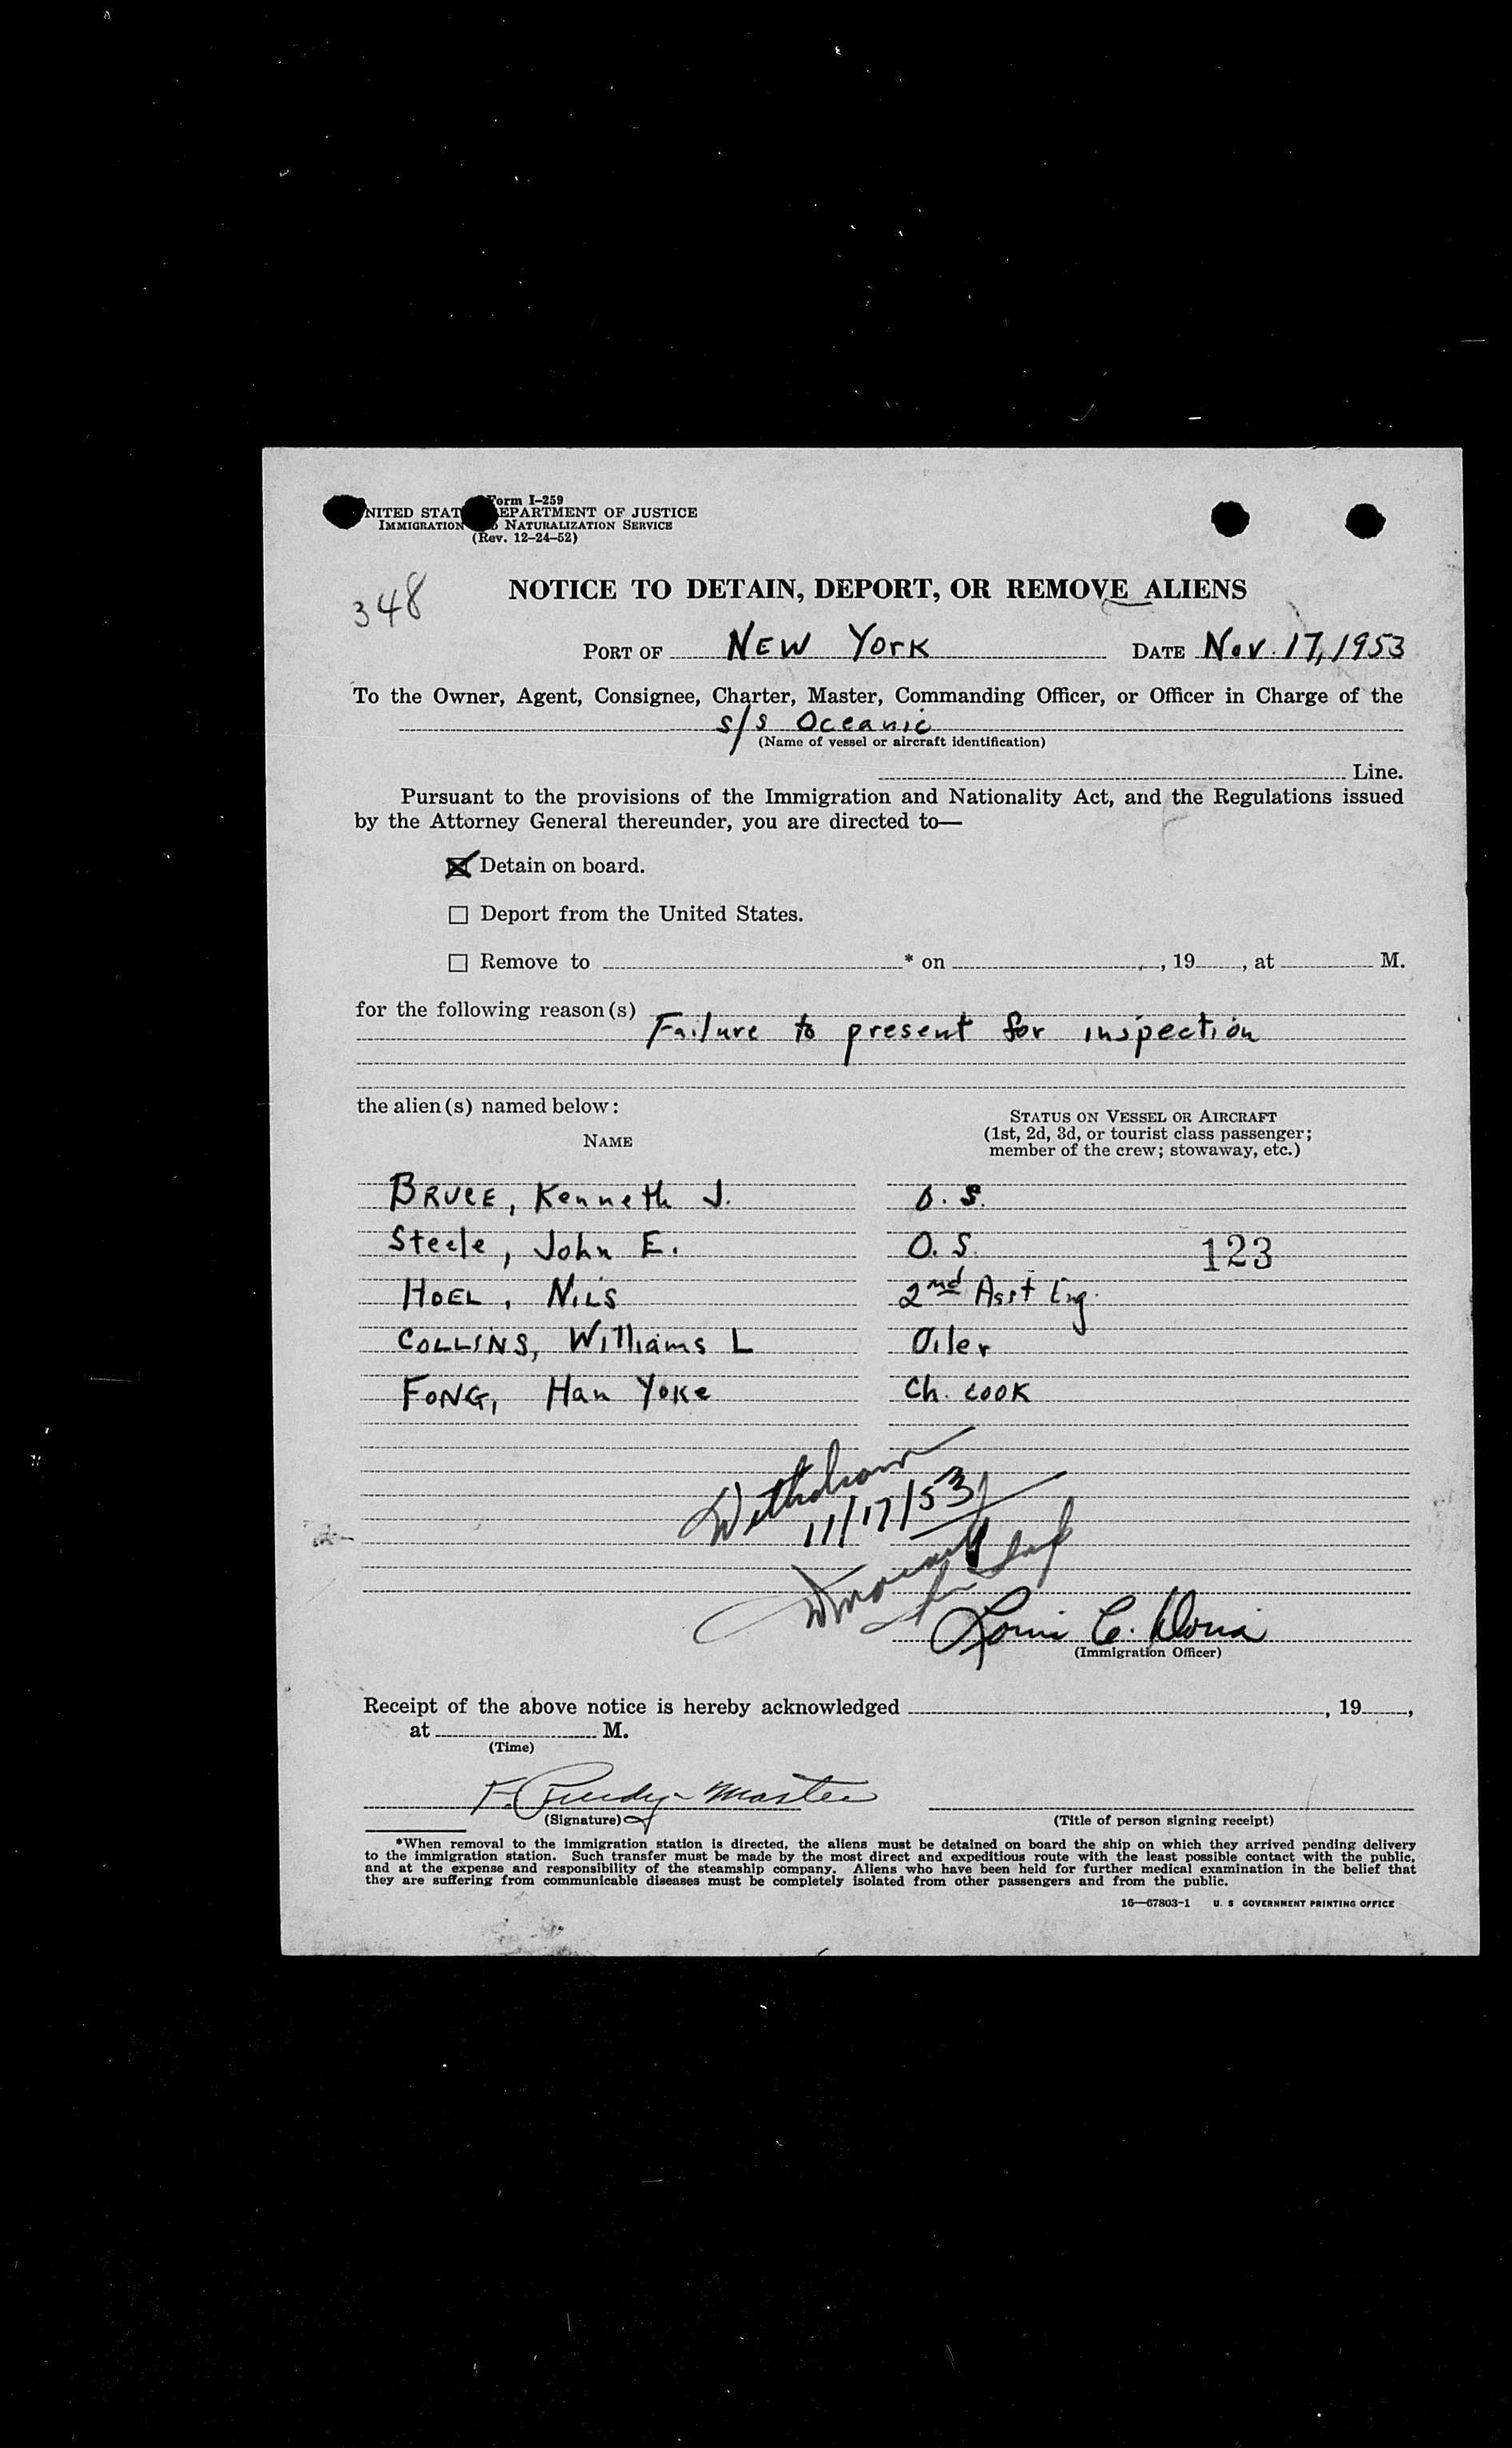 Form I-259
UNITED STATES DEPARTMENT OF JUSTICE
IMMIGRATION AND NATURALIZATION SERVICE
(Rev. 12-24-52)
348
NOTICE TO DETAIN, DEPORT, OR REMOVE ALIENS
PORT OF NEW YORK DATE Nov. 17, 1953
To the Owner, Agent, Consignee, Charter, Master, Commanding Officer, or Officer in Charge of the
s/s Oceanic
(Name of vessel or aircraft identification)
Line.
Pursuant to the provisions of the Immigration and Nationality Act, and the Regulations issued
by the Attorney General thereunder, you are directed to—
☒ Detain on board.
☐ Deport from the United States.
☐ Remove to * on , 19 , at M.
for the following reason(s)
Failure to present for inspection
the alien(s) named below:
NAME
STATUS ON VESSEL OR AIRCRAFT
(1st, 2d, 3d, or tourist class passenger;
member of the crew; stowaway, etc.)
BRUCE, Kenneth J. O. S.
Steele, John E. O. S. 123
HOEL, NILS 2nd Asst Eng.
COLLINS, Williams L Oiler
FONG, Han Yoke Ch. cook
Withdrawn
11/17/53
Louis C. Doria
(Immigration Officer)
Receipt of the above notice is hereby acknowledged , 19 ,
at M.
(Time)
F. Purdy - Master
(Signature) (Title of person signing receipt)
*When removal to the immigration station is directed, the aliens must be detained on board the ship on which they arrived pending delivery
to the immigration station. Such transfer must be made by the most direct and expeditious route with the least possible contact with the public,
and at the expense and responsibility of the steamship company. Aliens who have been held for further medical examination in the belief that
they are suffering from communicable diseases must be completely isolated from other passengers and from the public.
16—67803-1 U. S GOVERNMENT PRINTING OFFICE